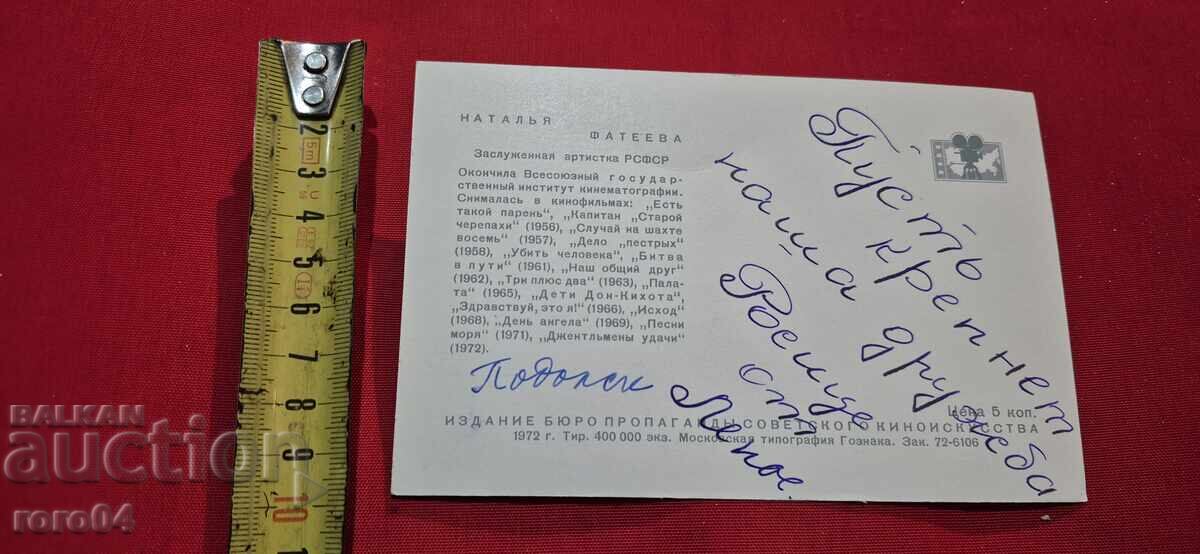 НАТАЛЬЯ
ФАТЕЕВА
Заслуженная артистка РСФСР
Окончила Всесоюзный государ-
ственный институт кинематографии.
Снималась в кинофильмах: „Есть
такой парень“, „Капитан „Старой
черепахи“ (1956), „Случай на шахте
восемь“ (1957), „Дело „пестрых“
(1958), „Убить человека“, „Битва
в пути“ (1961), „Наш общий друг“
(1962), „Три плюс два“ (1963), „Пала-
та“ (1965), „Дети Дон-Кихота“,
„Здравствуй, это я!“ (1966), „Исход“
(1968), „День ангела“ (1969), „Песни
моря“ (1971), „Джентльмены удачи“
(1972).
Подольск
Пусть крепнет
наша дружба
Росице
от
Цена 5 коп.
ИЗДАНИЕ БЮРО ПРОПАГАНДЫ СОВЕТСКОГО КИНОИСКУССТВА
1972 г. Тир. 400 000 экз. Московская типография Гознака. Зак. 72-6106
2
5m
3
4
5
6
7
8
9
10
BALKAN
auction
roro04